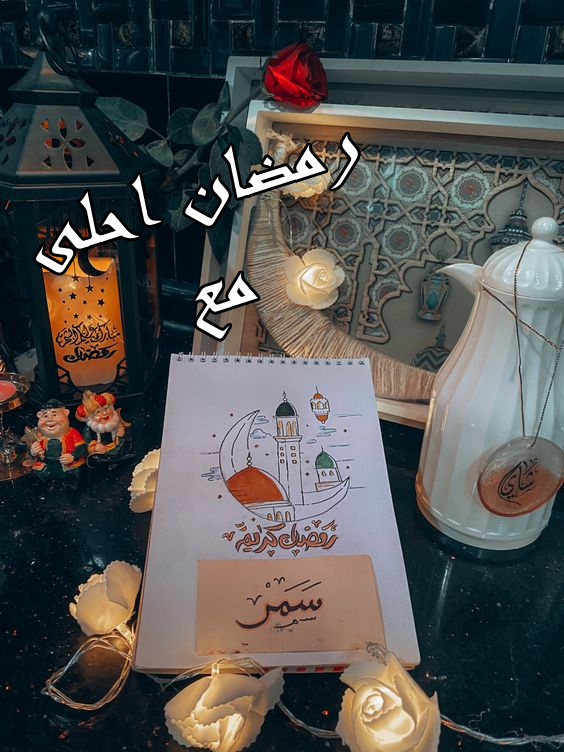 رمضان احلى
مع
رمضان كريم
سَمَرْ
شاي